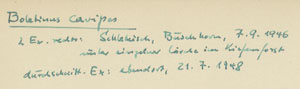 Boletinus cavipes
2 Ex. rechts: Schlebusch, Buschhorn, 7.9.1946
unter einzelner Lärche im Kiefernforst
durchschnitt. Ex: ebendort, 21.7.1948